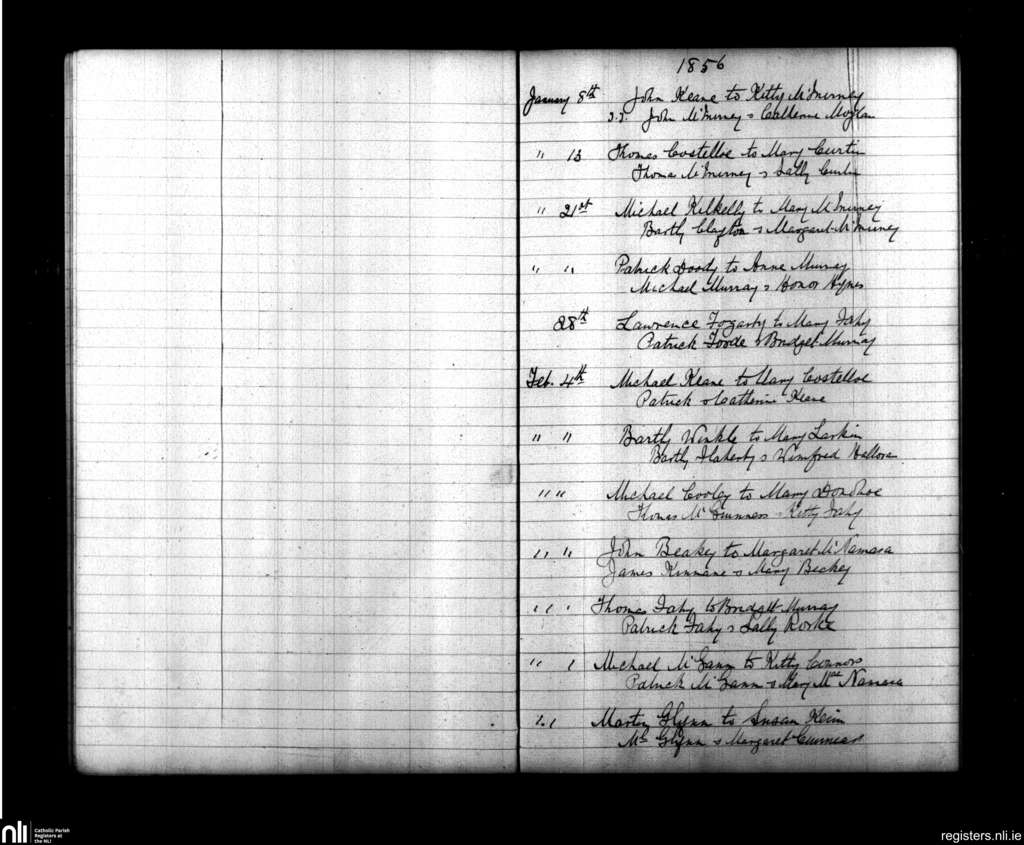 1856
January 8th John Keane to Kitty McInerney
J.J. John McInerney & Catherine Moylan
" 13 Thomas Costelloe to Mary Curtin
Thomas McInerney & Sally Curtin
" 21st Michael Kilkelly to Mary McInerney
Bartly Clayton & Margaret McInerney
" " Patrick Doody to Anne Murray
Michael Murray & Honor Hynes
28th Lawrence Fogarty to Mary Fahy
Patrick Forde & Bridget Murray
Feb. 4th Michael Keane to Mary Costelloe
Patrick & Catherine Keane
" " Bartly Winkle to Mary Larkin
Bartly Flaherty & Winifred Hallora
" " Michael Cooley to Mary Donohoe
Thomas Mc & Kitty Fahy
" " John Beakey to Margaret McNamara
James Kinnane & Mary Beckey
" " Thomas Fahy to Bridget Murray
Patrick Fahy & Sally Rorke
" " Michael McGann to Kitty Connors
Patrick McGann & Mary Mac Namara
" " Martin Glynn to Susan
Ml Glynn & Margaret
nli Catholic Parish
Registers at
the NLI
registers.nli.ie